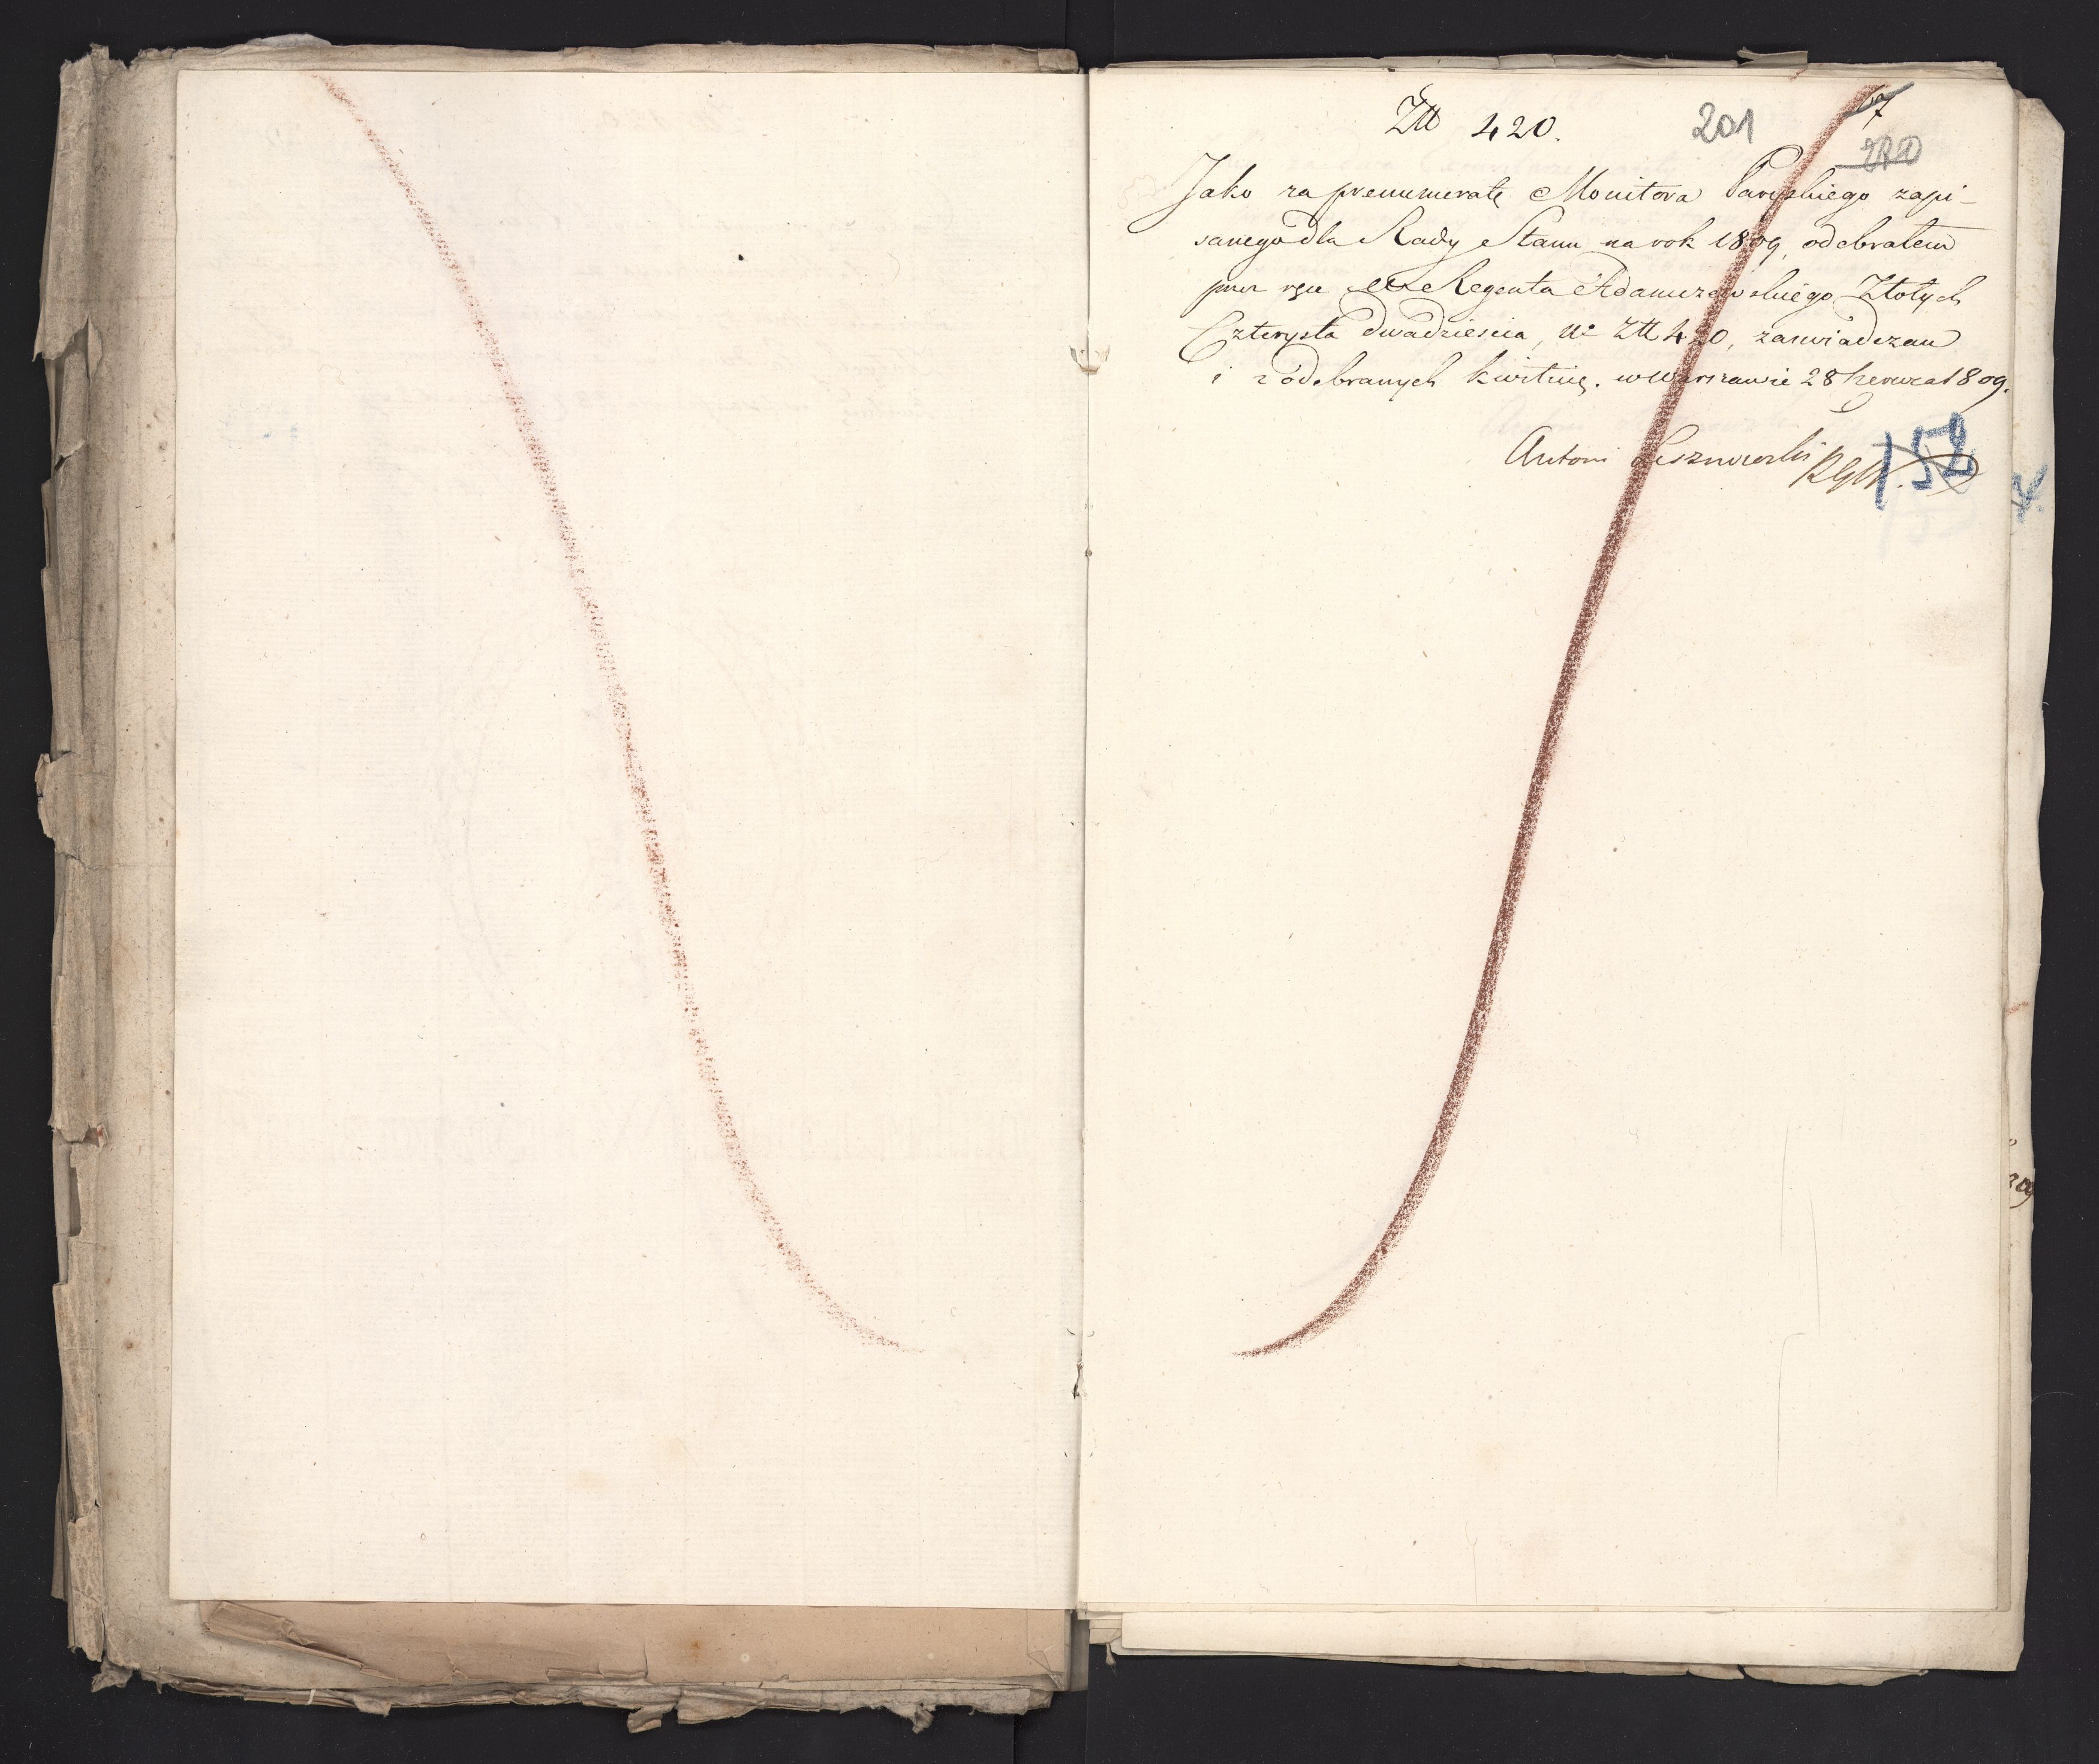 Złł 420.
201
Jako za prenumeratę Monitora Paryskiego zapi-
sanego dla Rady Stanu na rok 1809, odebrałem
przez ręce Regenta Adamczewskiego Złotych
Czterysta dwadzieścia, Nº Złł 420, zaświadczam
i z odebranych kwituię. w Warszawie 28 Czerwca 1809.
Antoni Lesznowski
152